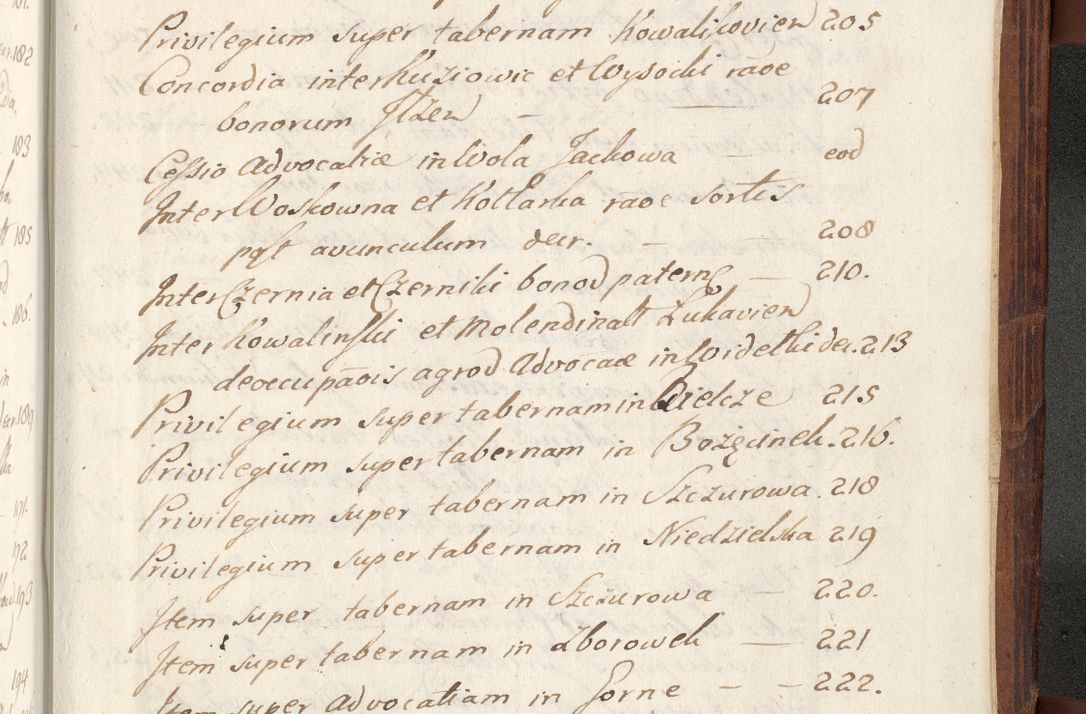 Privilegium super tabernam Kowalikovien 205
Concordia inter Kuziowic et Wysocki raõe
bonorum Itzen — 207
Cessio Advocatiæ in Wola Jackowa — eod
Inter Woskowna et Kotlarka raõe sortis
pqst avunculum decr. — — 208
Inter Czernia et Czerniki bonod patern — 210.
Inter Kowalinski et Molendinatt Lukavien
de occupaõis agrod Advocaæ in Widelki de. 213
Privilegium super tabernam in Bielcze 215
Privilegium super tabernam in Bożęcinek. 216.
Privilegium super tabernam in Szczurowa. 218
Privilegium super tabernam in Niedzielska 219
Item super tabernam in Szczurowa — 220.
Item super tabernam in Zborowek — 221
Item super Advocatiam in Gorne — — 222.
182
183
185
186.
189
191.
192
193
194